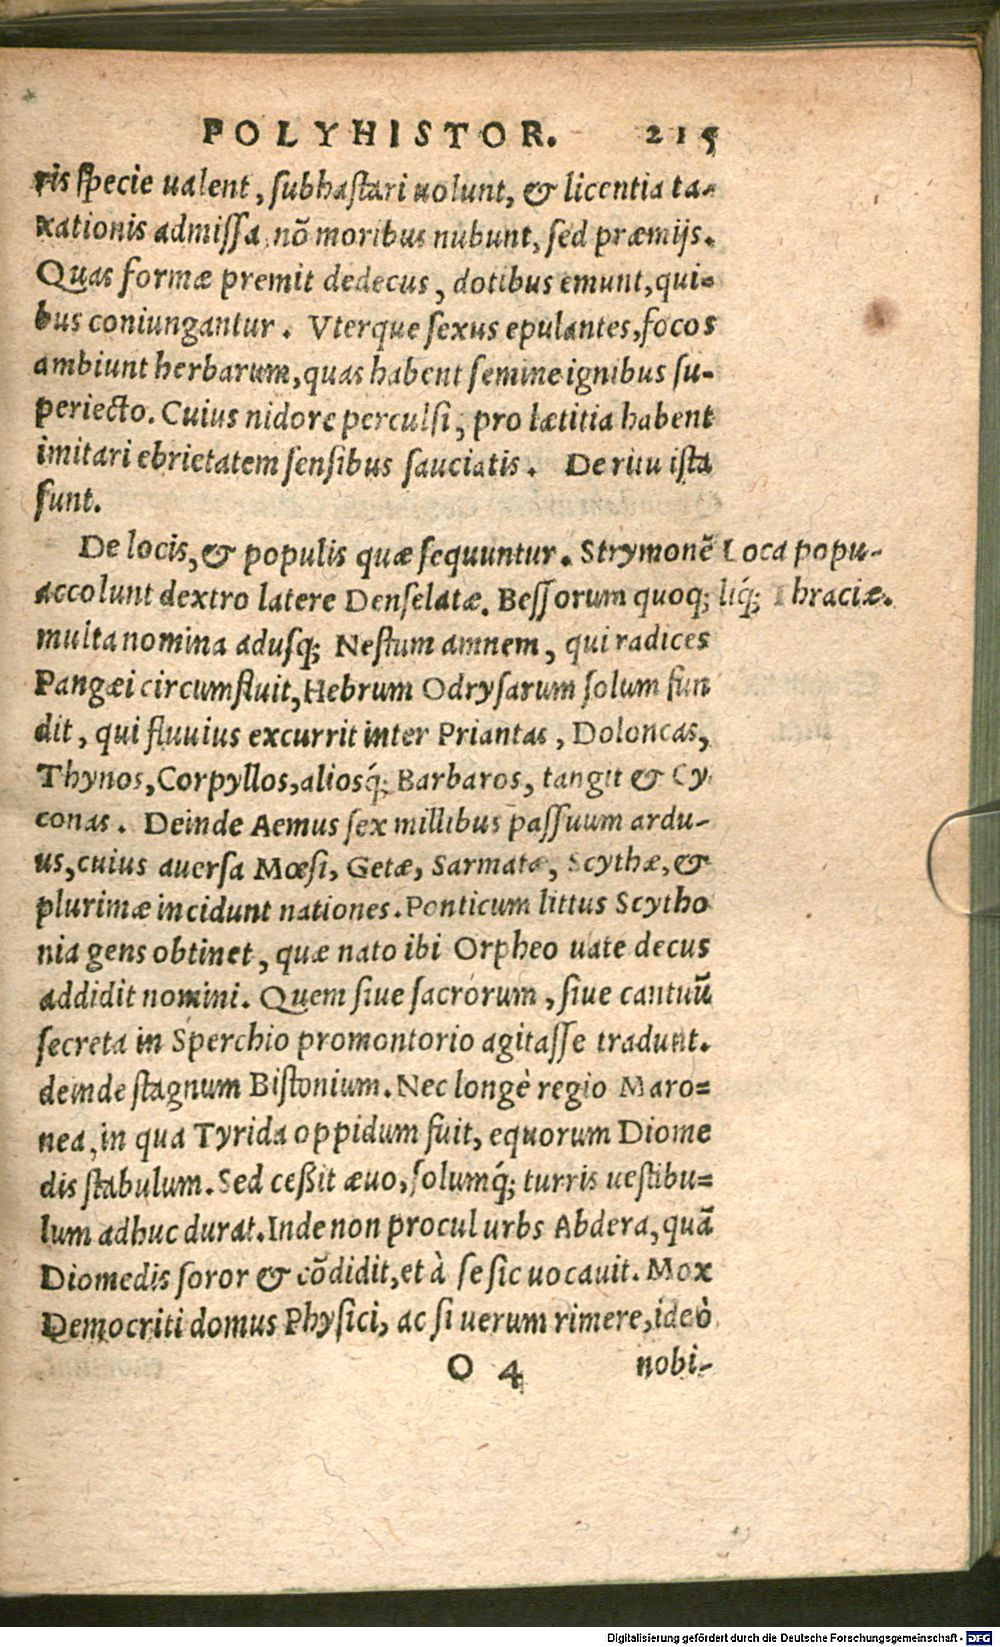 POLYHISTOR. 215
ris specie ualent, subhastari uolunt, & licentia ta-
xationis admissa, nõ moribus nubunt, sed præmijs.
Quas formæ premit dedecus, dotibus emunt, qui-
bus coniungantur. Vterque sexus epulantes, focos
ambiunt herbarum, quas habent semine ignibus su-
periecto. Cuius nidore perculsi, pro lætitia habent
imitari ebrietatem sensibus sauciatis. De ritu ista
sunt.
De locis, & populis quæ sequuntur. Strymonẽ
Loca popu-
accolunt dextro latere Denselatæ. Bessorum quoq;
liq́; Thraciæ.
multa nomina adusq; Nestum amnem, qui radices
Pangæi circumfluit, Hebrum Odrysarum solum fun
dit, qui fluuius excurrit inter Priantas, Doloncas,
Thynos, Corpyllos, aliosq́; Barbaros, tangit & Cy
conas. Deinde Aemus sex millibus passuum ardu-
us, cuius auersa Mœsi, Getæ, Sarmatæ, Scythæ, &
plurimæ incidunt nationes. Ponticum littus Scytho
nia gens obtinet, quæ nato ibi Orpheo uate decus
addidit nomini. Quem siue sacrorum, siue cantuũ
secreta in Sperchio promontorio agitasse tradunt.
deinde stagnum Bistonium. Nec longè regio Maro-
nea, in qua Tyrida oppidum fuit, equorum Diome
dis stabulum. Sed ceßit æuo, solumq́; turris uestibu-
lum adhuc durat. Inde non procul urbs Abdera, quã
Diomedis soror & cõdidit, et à se sic uocauit. Mox
Democriti domus Physici, ac si uerum rimere, ideò
O 4 nobi-
Digitalisierung gefördert durch die Deutsche Forschungsgemeinschaft - DFG